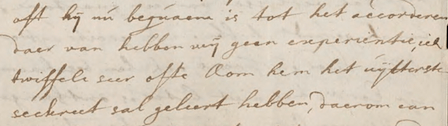 oft hij nú bequaem is tot het accorderen
daer van hebben wij geen experientie, ick
twiffele seer ofte Oom hem het uÿtterste
seckreet sal geleert hebben, daerom can